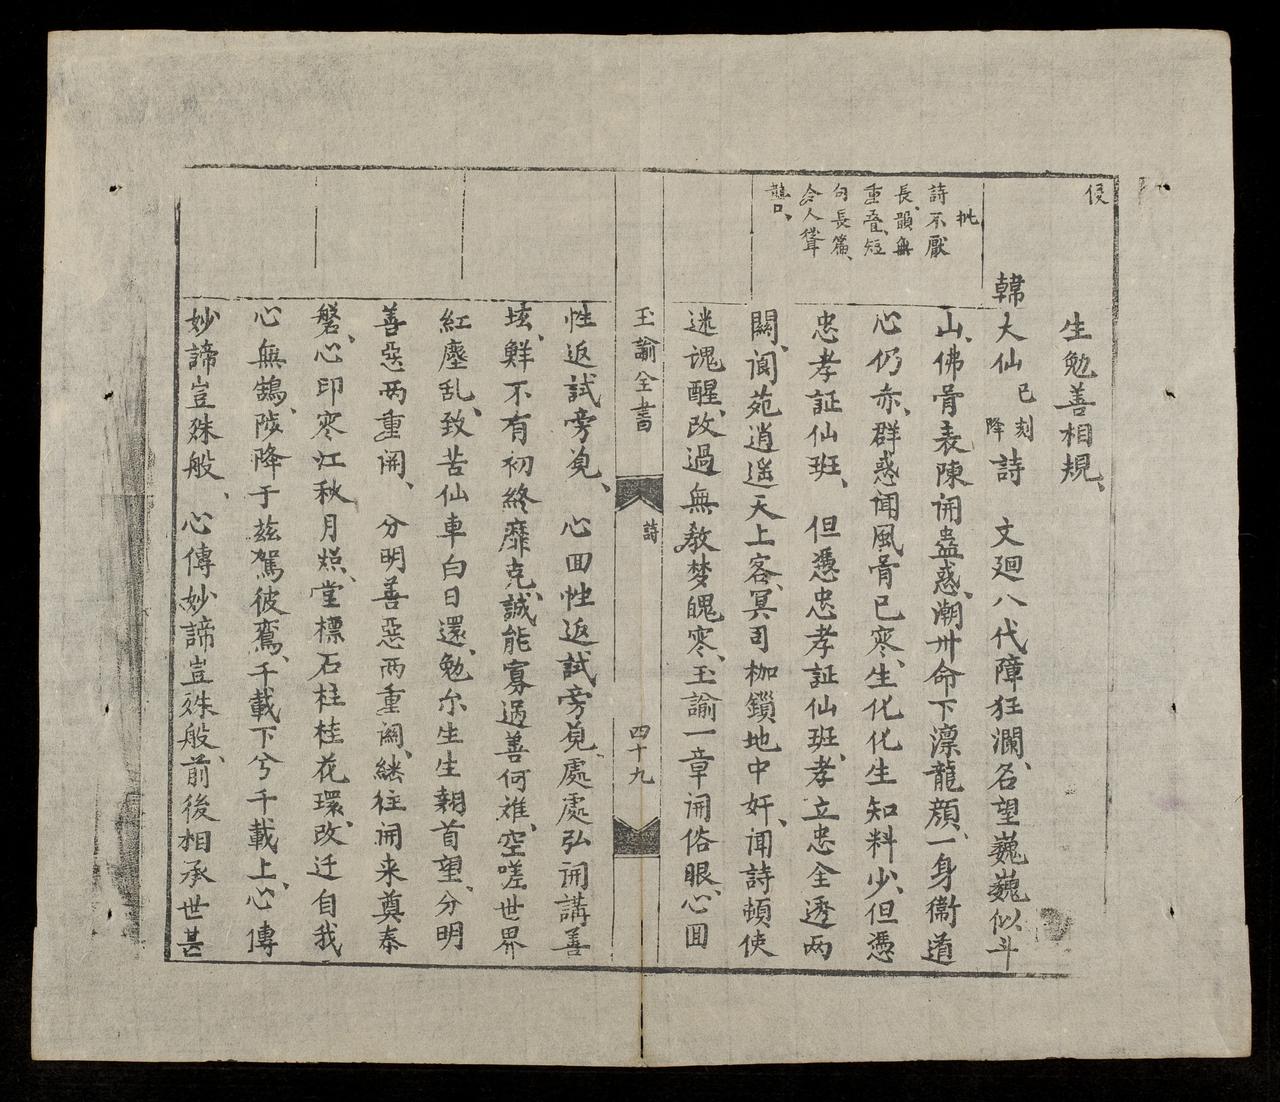 侯
批
詩不厭
長、韻無
重叠、短
句長篇、
令人聳
聽、
生勉善相規、
韓大仙 巳刻降 詩　文廻八代障狂瀾、名望巍巍似斗
山、佛骨表陳開蠱惑、潮州命下凛龍顔、一身衛道
心仍赤、群惑闻風膏已寒、生化化生知料少、但憑
忠孝証仙班、　但憑忠孝証仙班、孝立忠全透两
關、阆苑逍遥天上客、冥司枷鎖地中奸、闻詩頓使
迷魂醒、改過無教梦魄寒、玉諭一章開俗眼、心囬
玉諭全書
詩
四十九
性返試旁覓、　心囬性返試旁覓、處處弘開講善
坛、鮮不有初終靡克、誠能寡過善何难、空嗟世界
紅塵乱、致苦仙車白日還、勉尔生生翘首望、分明
善惡两重開、　分明善惡两重關、継往開来奠泰
磐、心印寒江秋月炤、堂標石柱桂花環、改迁自我
心無鵠、陟降于茲駕彼鸞、千載下兮千載上、心傳
妙諦豈殊般、　心傳妙諦豈殊般、前後相承世甚